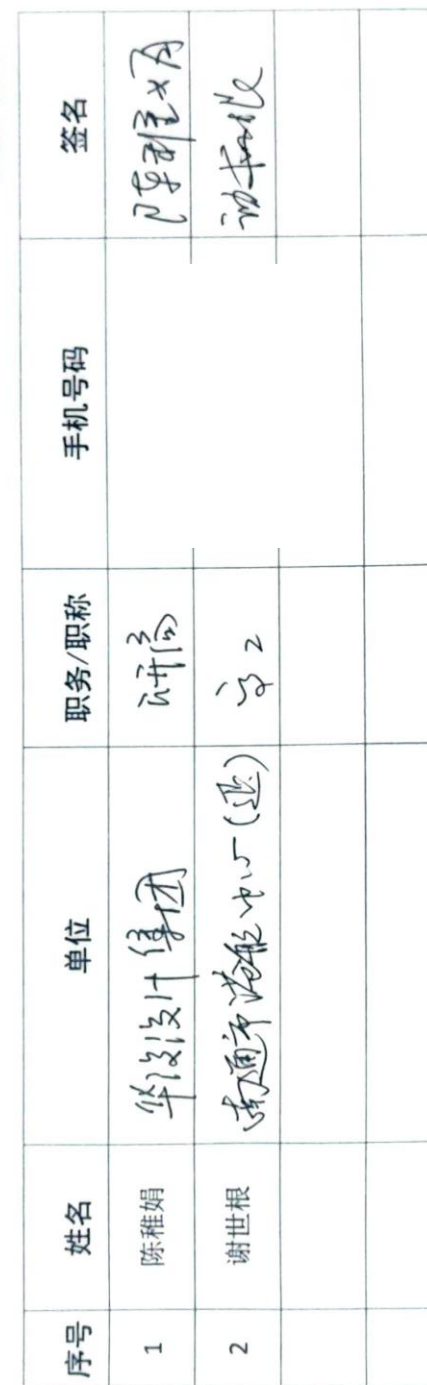 序号 姓名 单位 职务/职称 手机号码 签名
1 陈稚娟 华设设计集团 研高 陈稚娟
2 谢世根 南通市港航中心(退) 高工 谢世根